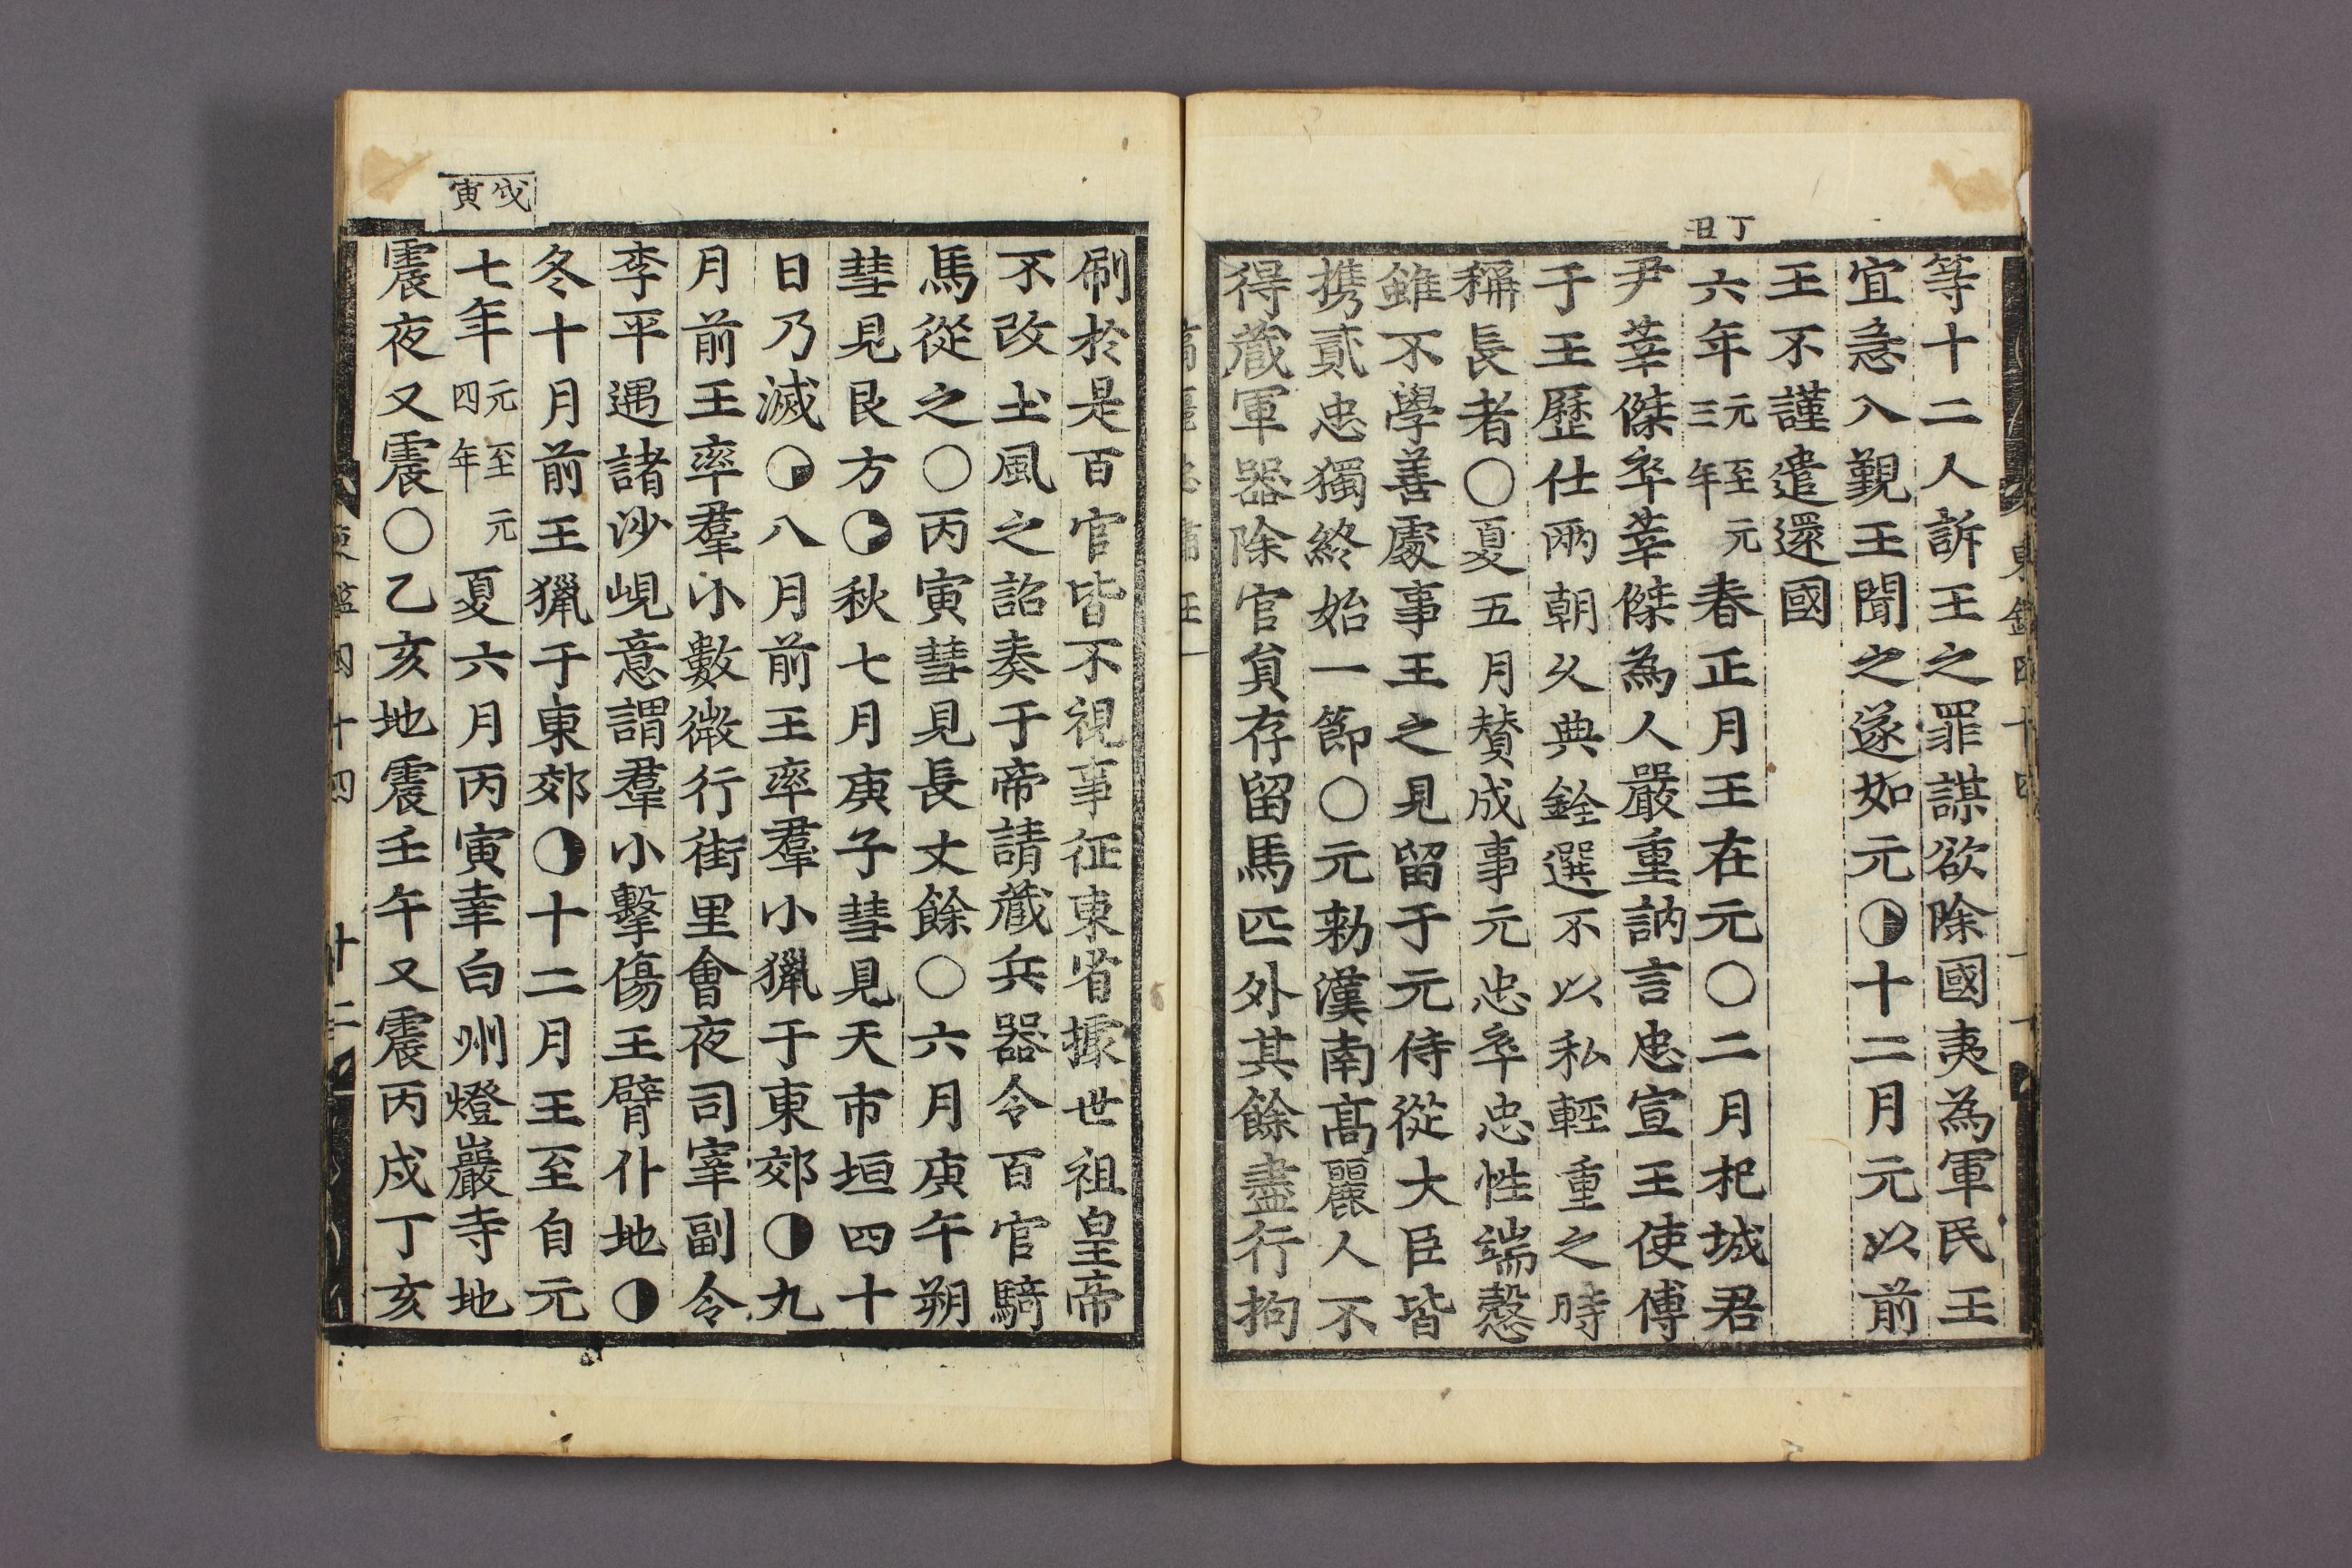 丁丑
等十二人訴王之罪謀欲除國夷為軍民王
宜急入覲王聞之遂如元◑十二月元以前
王不謹遣還國
六年元至元三年春正月王在元○二月杞城君
尹莘傑卒莘傑為人嚴重訥言忠宣王使傅
于王歷仕兩朝久典銓選不以私輕重之時
稱長者○夏五月賛成事元忠卒忠性端慤
雖不學善處事王之見留于元侍從大臣皆
携貳忠獨終始一節○元勑漢南高麗人不
得藏軍器除官負存留馬匹外其餘盡行拘
戊寅
刷於是百官皆不視事征東省據世祖皇帝
不改土風之詔奏于帝請藏兵器令百官騎
馬從之○丙寅彗見長丈餘○六月庚午朔
彗見艮方◑秋七月庚子彗見天市垣四十
日乃滅◑八月前王率羣小獵于東郊◑九
月前王率羣小數微行街里會夜司宰副令
李平遇諸沙峴意謂羣小擊傷王臂仆地◑
冬十月前王獵于東郊◑十二月王至自元
七年元至元四年夏六月丙寅幸白州燈巖寺地
震夜又震○乙亥地震壬午又震丙戍丁亥
東監四十四 十二